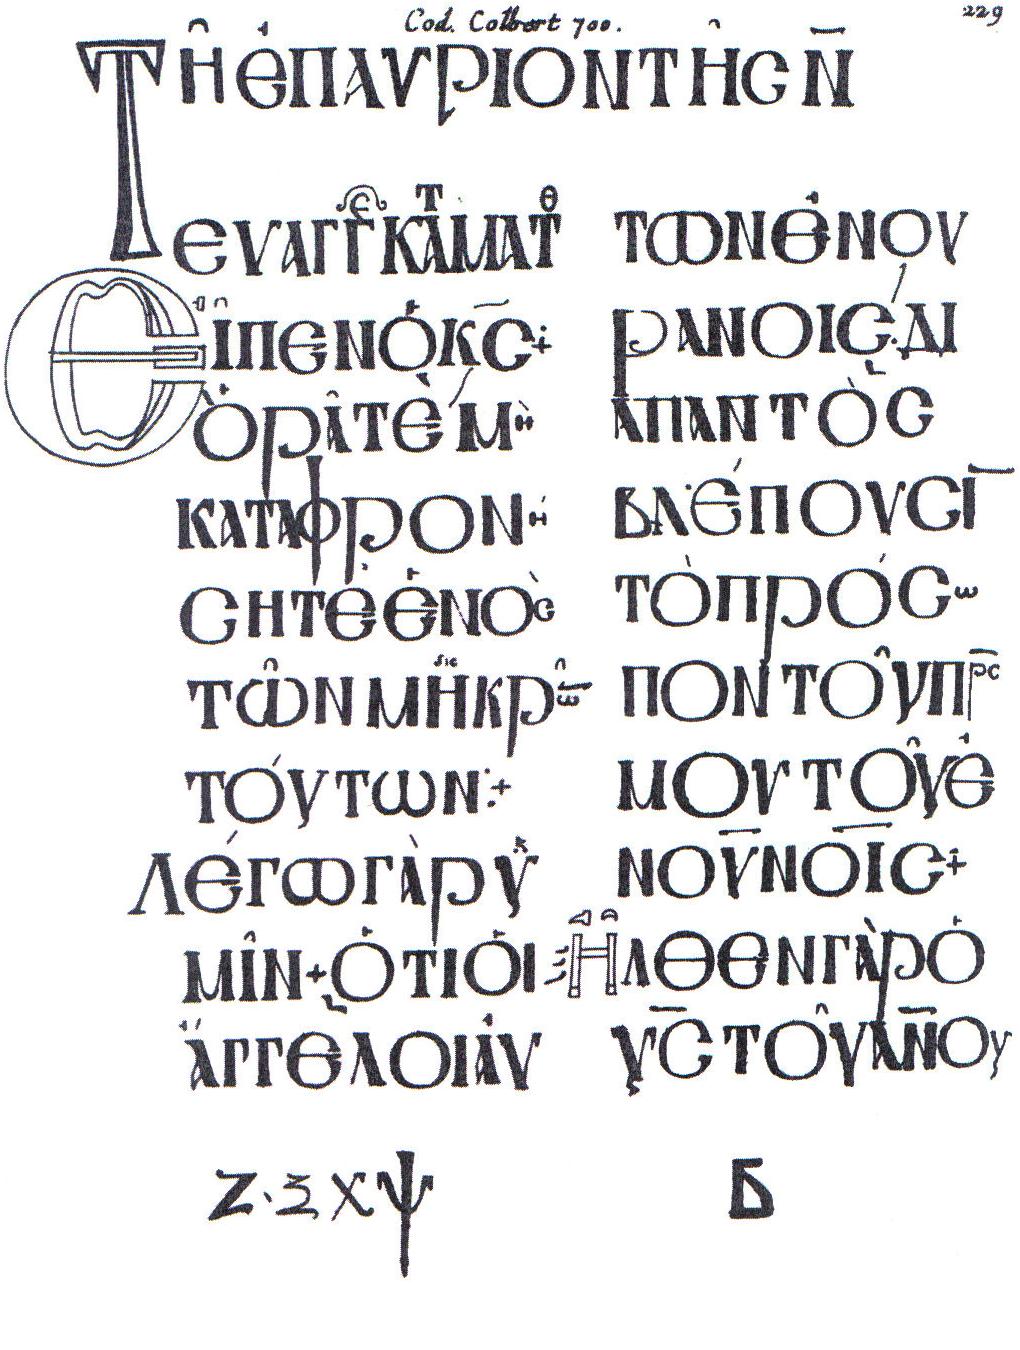 Cod. Colbert 700.
229
Τῆ ἐπαυριον τῆς Ν̄
ευαγγε κατ ματθ
Εἶπεν ὁ κ̄ς̄
ὁρᾶτε μὴ
καταφρον
σητε ἑνὸς
τῶν μῆκρῶ
τούτων
λέγω γὰρ ὑ
μῖν ὅτι ὁι
ἄγγελοι ἀυ
των ἐν ου
ρανοις δι
απαντὸς
βλέπουσῑ
τὸ πρόσω
πον τοῦ πρ̄ς̄
μου τοῦ ἐ
νου̅νο̅ι̅ς
Ἦλθεν γὰρ ὁ
ῡς̄ τοῦ ᾱν̄ου
Ζ· ξ χ ψ
Б